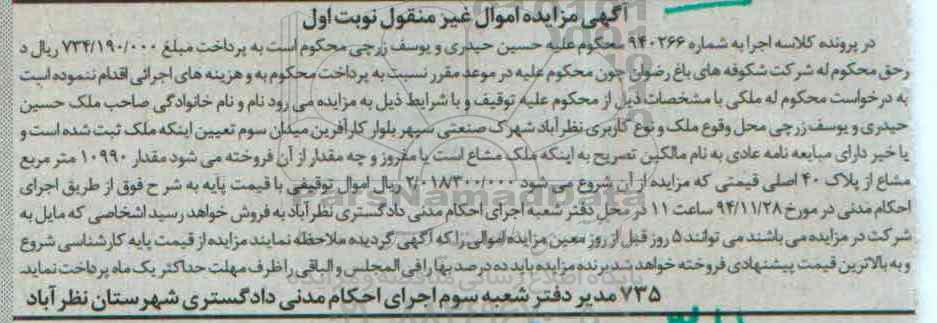 آگهی مزایده اموال غیر منقول نوبت اول
در پرونده کلاسه اجرا به شماره ۹۴۰۲۶۶ محکوم علیه حسین حیدری و یوسف زرچی محکوم است به پرداخت مبلغ ۷۳۴/۱۹۰/۰۰۰ ریال د
رحق محکوم له شرکت شکوفه های باغ رضوان چون محکوم علیه در موعد مقرر نسبت به پرداخت محکوم به و هزینه های اجرائی اقدام ننموده است
به درخواست محکوم له ملکی با مشخصات ذیل از محکوم علیه توقیف و با شرایط ذیل به مزایده می رود نام و نام خانوادگی صاحب ملک حسین
حیدری و یوسف زرچی محل وقوع ملک و نوع کاربری نظرآباد شهرک صنعتی سپهر بلوار کارآفرین میدان سوم تعیین اینکه ملک ثبت شده است و
یا خیر دارای مبایعه نامه عادی به نام مالکین تصریح به اینکه ملک مشاع است یا مفروز و چه مقدار از آن فروخته می شود مقدار ۱۰۹۹۰ متر مربع
مشاع از پلاک ۴۰ اصلی قیمتی که مزایده از آن شروع می شود ۲/۰۱۸/۳۰۰/۰۰۰ ریال اموال توقیفی با قیمت پایه به شرح فوق از طریق اجرای
احکام مدنی در مورخ ۹۴/۱۱/۲۸ ساعت ۱۱ در محل دفتر شعبه اجرای احکام مدنی دادگستری نظرآباد به فروش خواهد رسید اشخاصی که مایل به
شرکت در مزایده می باشند می توانند ۵ روز قبل از روز معین مزایده اموالی را که آگهی گردیده ملاحظه نمایند مزایده از قیمت پایه کارشناسی شروع
و به بالاترین قیمت پیشنهادی فروخته خواهد شد برنده مزایده باید ده درصد بها را فی المجلس و الباقی را ظرف مهلت حداکثر یک ماه پرداخت نماید.
۷۳۵ مدیر دفتر شعبه سوم اجرای احکام مدنی دادگستری شهرستان نظرآباد
ParsNamadData